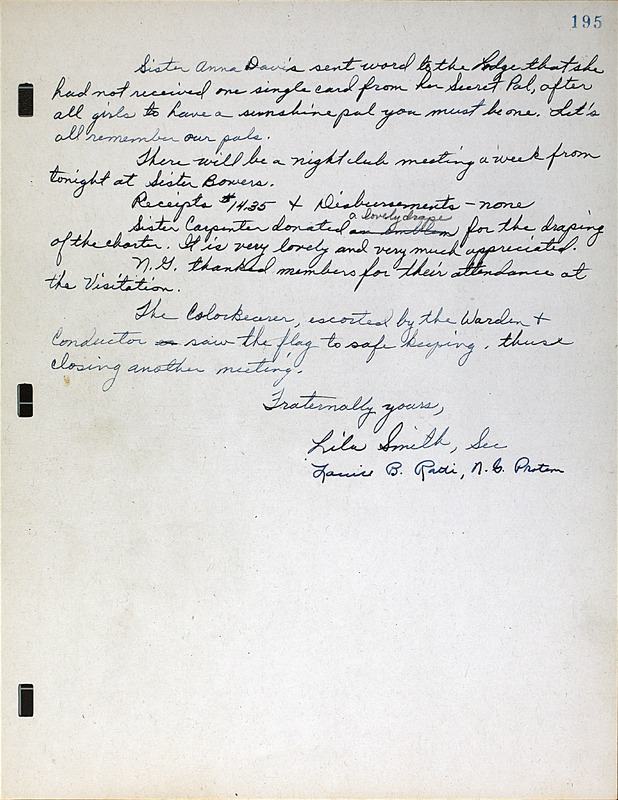 195
Sister Anna Davis sent word to the lodge that she
had not received one single card from her Secret Pal, after
all girls to have a sunshine pal you must be one. Let's
all remember our pals.
There will be a night club meeting a week from
tonight at Sister Bowers.
Receipts $14.35 & Disbursements - none
a lovely drape
Sister Carpenter donated an emblem for the draping
of the charter. It is very lovely and very much appreciated.
N.G. thanked members for their attendance at
the Visitation.
The Colorbearer, escorted by the Warden &
Conductor saw the flag to safe keeping, thuse
closing another meeting.
Fraternally yours,
Lila Smith, Sec
B. N.G. Protem